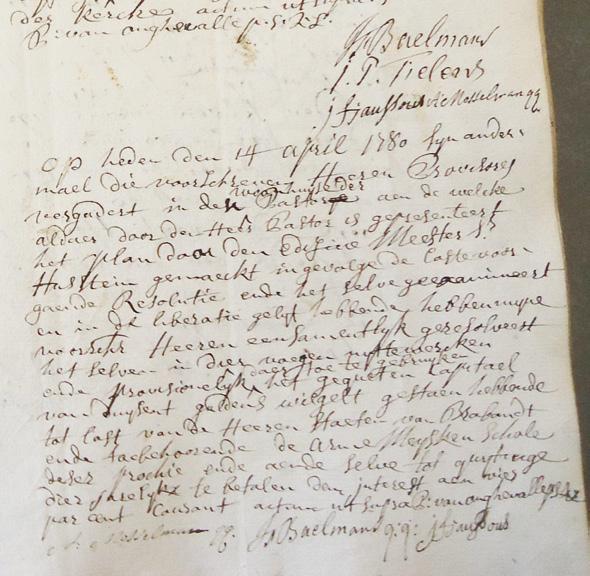 der Kercke actum ut supra
P: van anghevalle p. S: R: L:
JJ Baelmans
J. P. Tielens
J Hanssous A: Mosselman qq
Op heden den 14 april 1780 syn ander-
mael die voorschreven Heeren Provisores
vergadert in den woonhuyse der Pastorye aen de welcke
aldaer door der Heer Pastor is gepresenteert
het plan door den Edificie Meester Sr
Hustein gemaeckt ingevolge de laste voor-
gaende Resolutie ende het selve geexamineert
en in de liberatie geleyt hebbende hebben
voorschr Heeren eensamentlyk geresolveert
het selven in dier voegen uyttewercken
ende provisionelyk daer toe te gebruyken het gequeten Capitael
van duysent guldens wisgelt gestaen hebbende
tot last van de Heeren Staeten van Brabandt
ende toebehoorende de arme Meyskens schole
deser prochie ende aende selve tot quytinge
dier jaerlykx te betalen den interest aen vier
par cent Courant actum ut supra P: van anghevalle p
Mosselman qq. JJ Baelmans q:q: J Hanssous